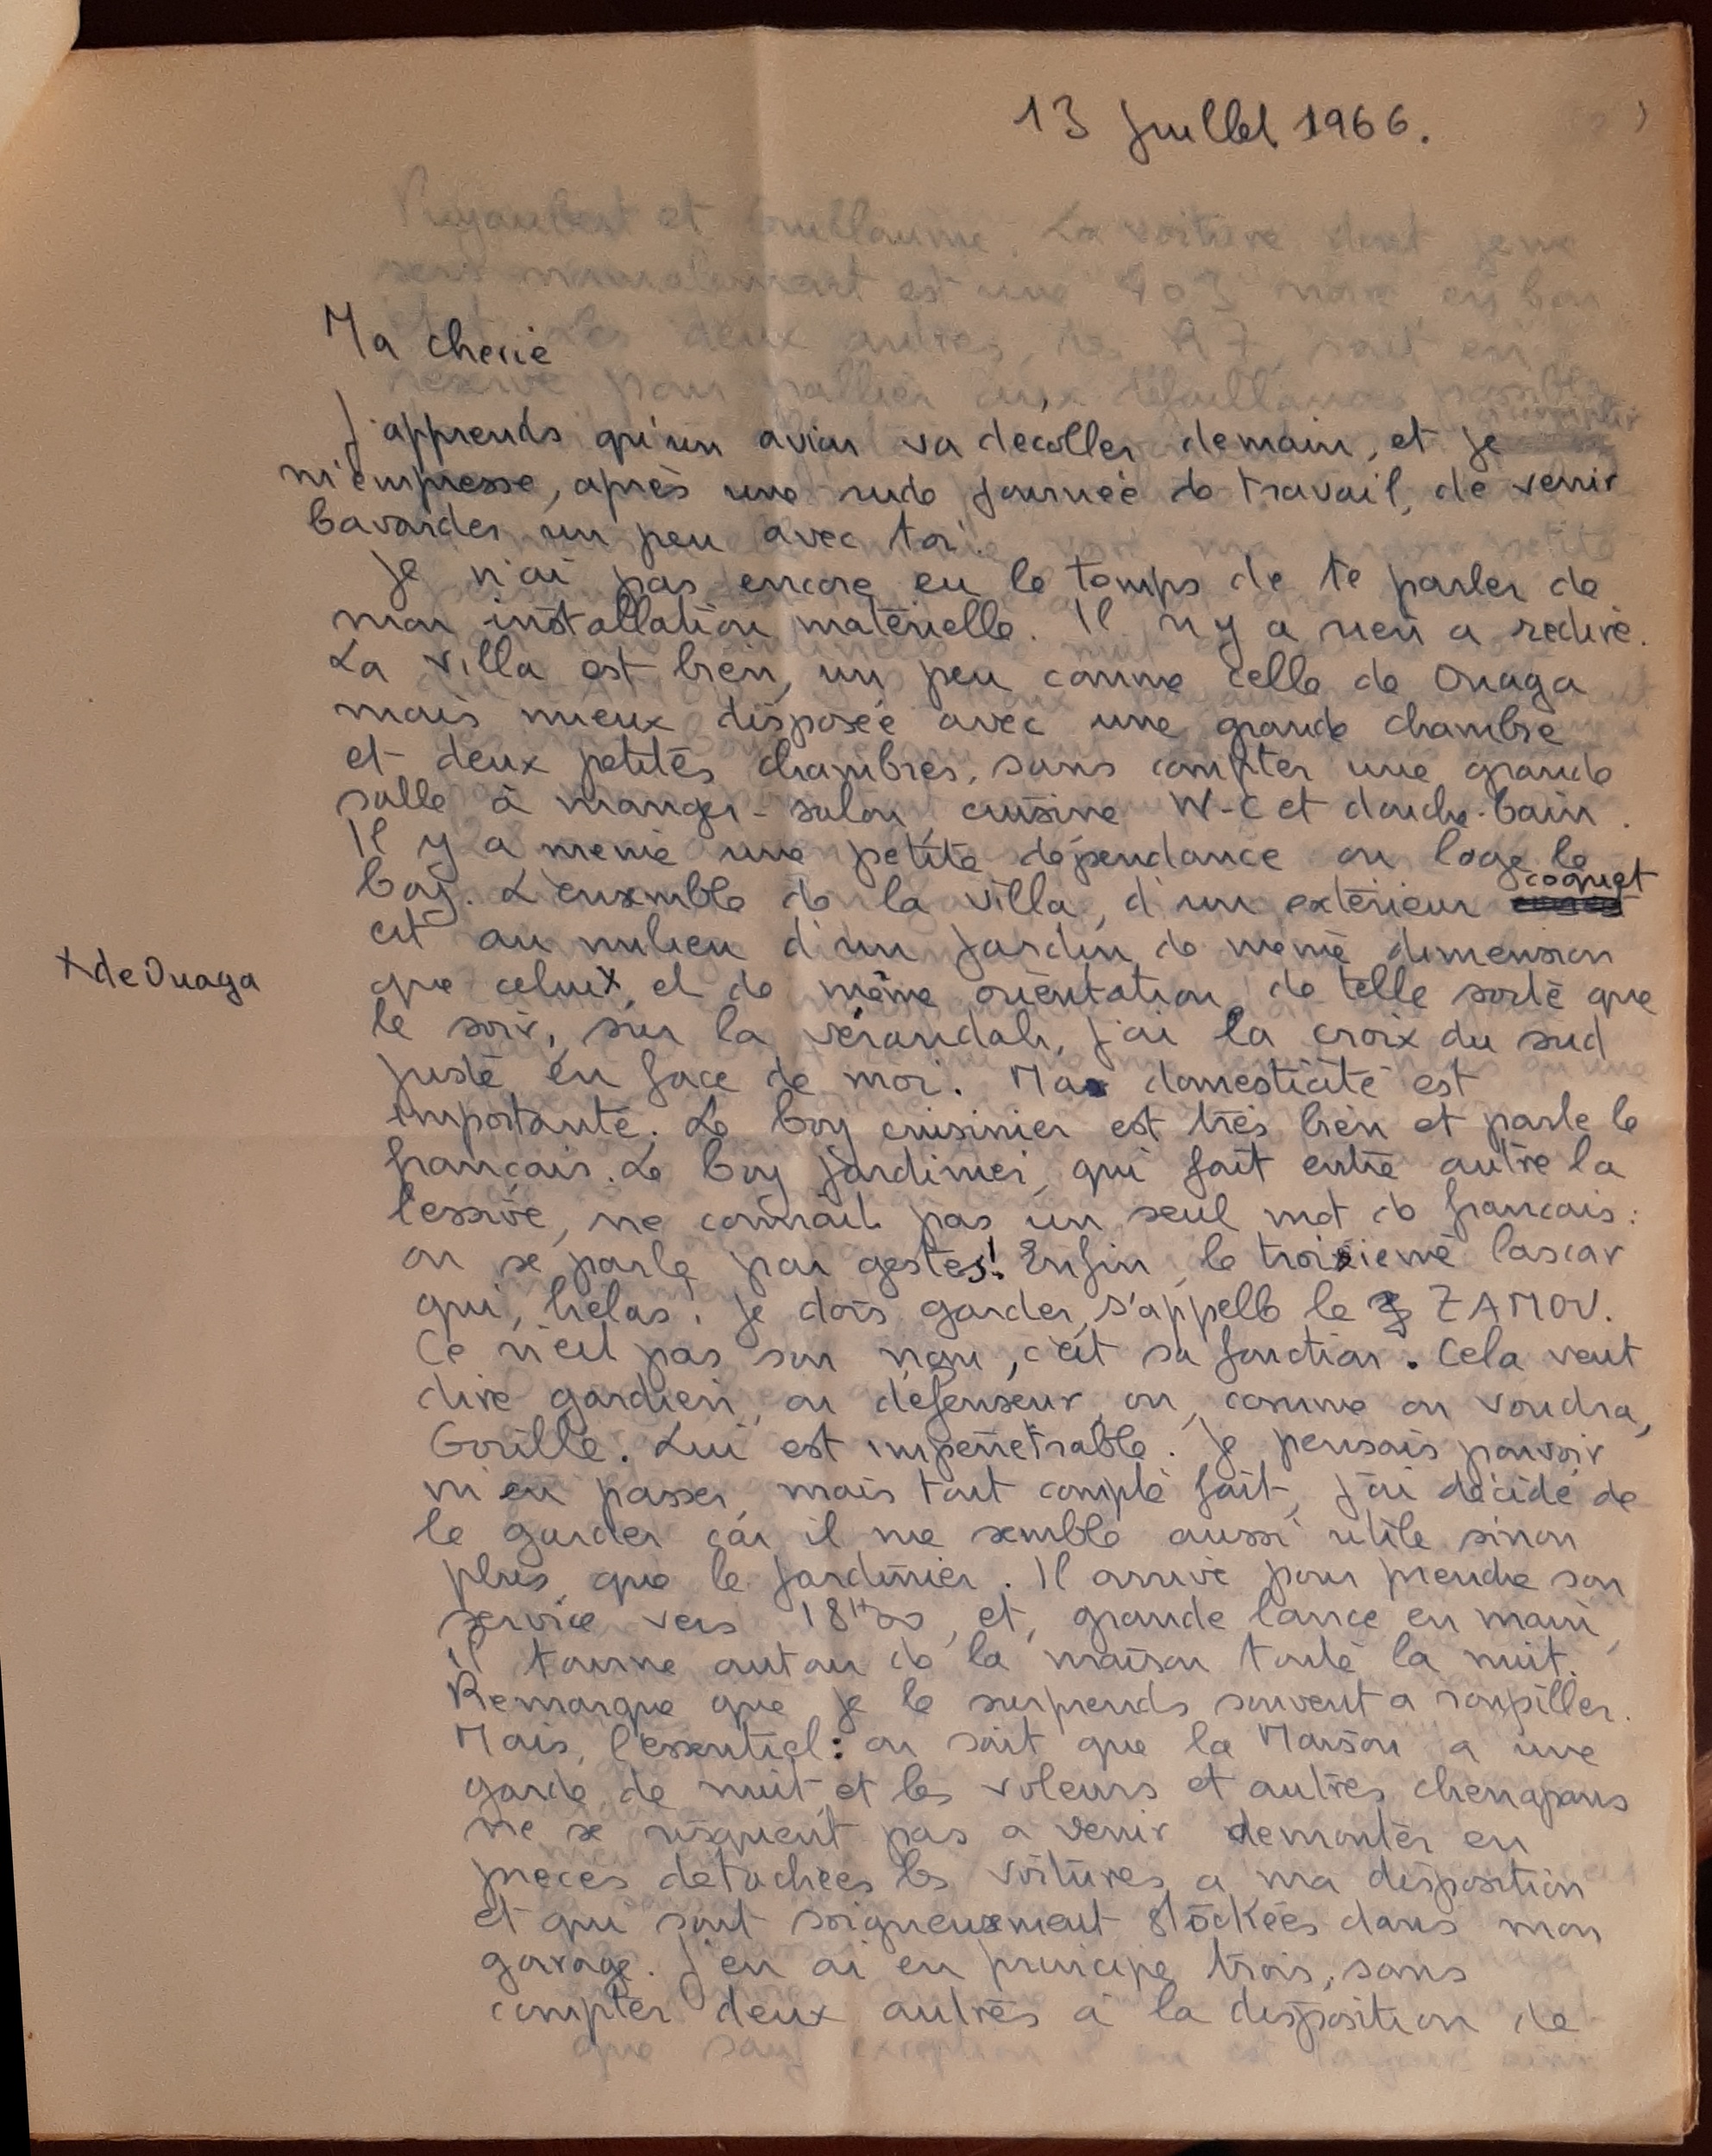 13 Juillet 1966.
Ma cherie
J'apprends qu'un avion va decoller demain, et je
m'empresse, après une rude journée de travail, de venir
bavarder un peu avec toi.
Je n'ai pas encore eu le temps de te parler de
mon installation matérielle. Il n'y a rien a redire.
La villa est bien, un peu comme celle de Ouaga
mais mieux disposée avec une grande chambre
et deux petites chambres, sans compter une grande
salle à manger-salon, cuisine W-C et douche-bain.
Il y a meme une petite dépendance ou loge le
boy. L'ensemble de la villa, d'un extérieur coquet
est au milieu d'un jardin de même dimension
que celui x, et de même orientation, de telle sorte que
x de Ouaga
le soir, sur la vérandah, j'ai la croix du sud
juste en face de moi. Ma domesticité est
importante. Le boy cuisinier est très bien et parle le
francais. Le boy jardinier, qui fait entre autre la
lessive, ne connait pas un seul mot de francais:
on se parle par gestes! Enfin, le troisieme lascar
qui, helas! je dois garder, s'appelle le ZAMOU.
Ce n'est pas son nom, c'est sa fonction. Cela veut
dire gardien, ou défenseur, ou, comme on voudra,
Gorille. Lui est impenetrable. Je pensais pouvoir
m'en passer, mais tout compte fait, j'ai décidé de
le garder car il me semble aussi utile sinon
plus que le jardinier. Il arrive pour prendre son
service vers 18H00, et, grande lance en main,
il tourne autour de la maison toute la nuit.
Remarque que je le surprends souvent a roupiller.
Mais, l'essentiel: on sait que la Maison a une
garde de nuit, et les voleurs et autres chenapans
ne se risquent pas a venir demonter en
pieces detachees les voitures a ma disposition
et qui sont soigneusement stockées dans mon
garage. J'en ai en principe trois, sans
compter deux autres à la disposition de